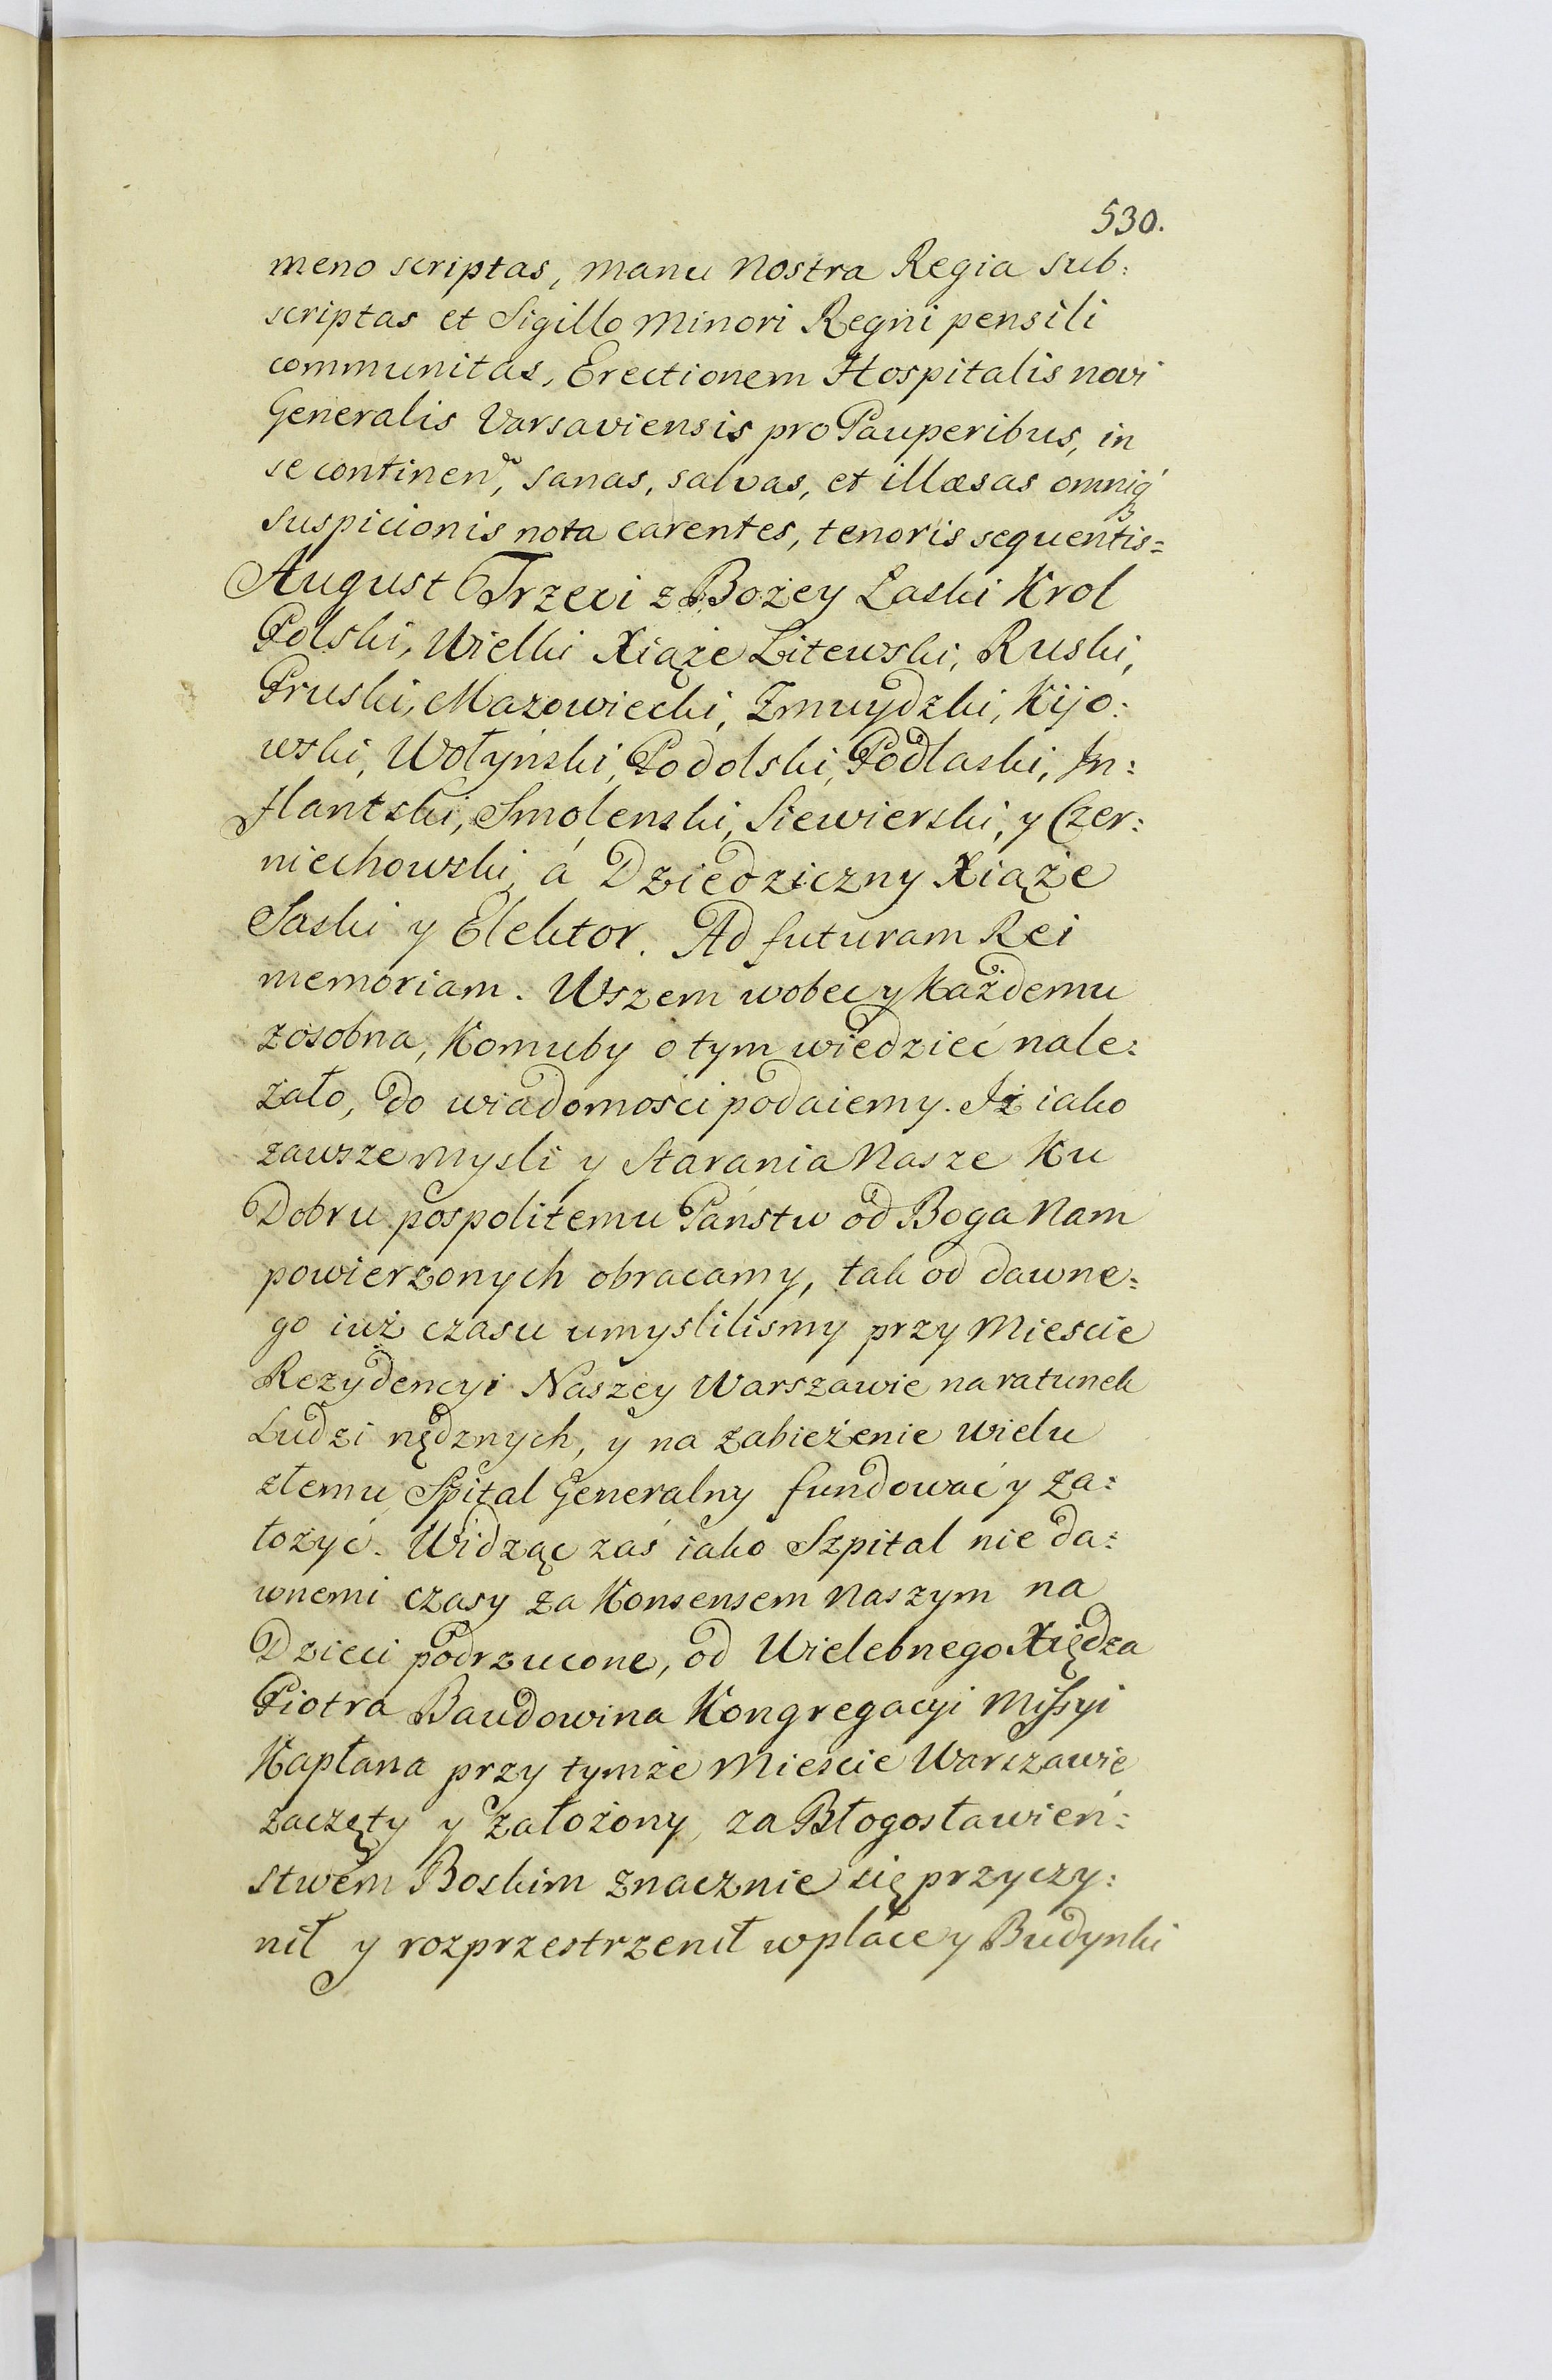 530.
meno scriptas, manu Nostra Regia sub:
scriptas et Sigillo Minori Regni pensili
communitas, Erectionem Hospitalis novi
Generalis Varsaviensis pro Pauperibus, in
se continen, sanas, salvas, et illæsas omniq
suspicionis nota carentes, tenoris sequentis=
August Trzeci z Bożey Łaski Krol
Polski, Wielki Xiąże Litewski, Ruski,
Pruski, Mazowiecki, Zmuydzki, Kijo:
wski, Wołyński, Podolski, Podlaski, In:
flantski, Smolenski, Siewierski, y Czer:
niechowski, á Dziedziczny Xiąże
Saski y Elektor. Ad futuram Rei
memoriam. Wszem wobec y Każdemu
zosobna, Komuby o tym wiedzieć nale:
żało, do wiadomości podaiemy. Iż iako
zawsze Mysli y Starania Nasze Ku
Dobru pospolitemu Państw od Boga Nam
powierzonych obracamy, tak od dawne:
go iuż czasu umyslilismy przy Miescie
Rezydencyi Naszey Warszawie na ratunek
Ludzi nędznych, y na zabieżenie wielu
złemu Spital Generalny fundować y za:
łożyć. Widząc zaś iako Szpital nie da:
wnemi czasy za Konsensem Naszym na
Dzieci podrzucone, od Wielebnego Xiędza
Piotra Baudowina Kongregacyi Missyi
Kapłana przy tymże Miescie Warszawie
zaczęty y założony, za Błogosławień:
stwem Boskim znacznie się przyczy:
nił y rozprzestrzenił w place y Budynki